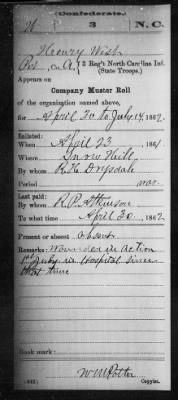 Confederate.
3 N.C.
Henry West
Pvt, Co. A, 3 Reg't North Carolina Inf.
(State Troops.)
Appears on
Company Muster Roll
of the organization named above,
for April 30 to July 14, 1862.
Enlisted:
When April 23, 1861
Where Snow Hill
By whom R. H. Drysdale
Period war
Last paid:
By whom R. P. Atkinson
To what time April 30, 1862
Present or absent absent
Remarks: Wounded in action
1st July in Hospital since
that time
Book mark:
Copyist.